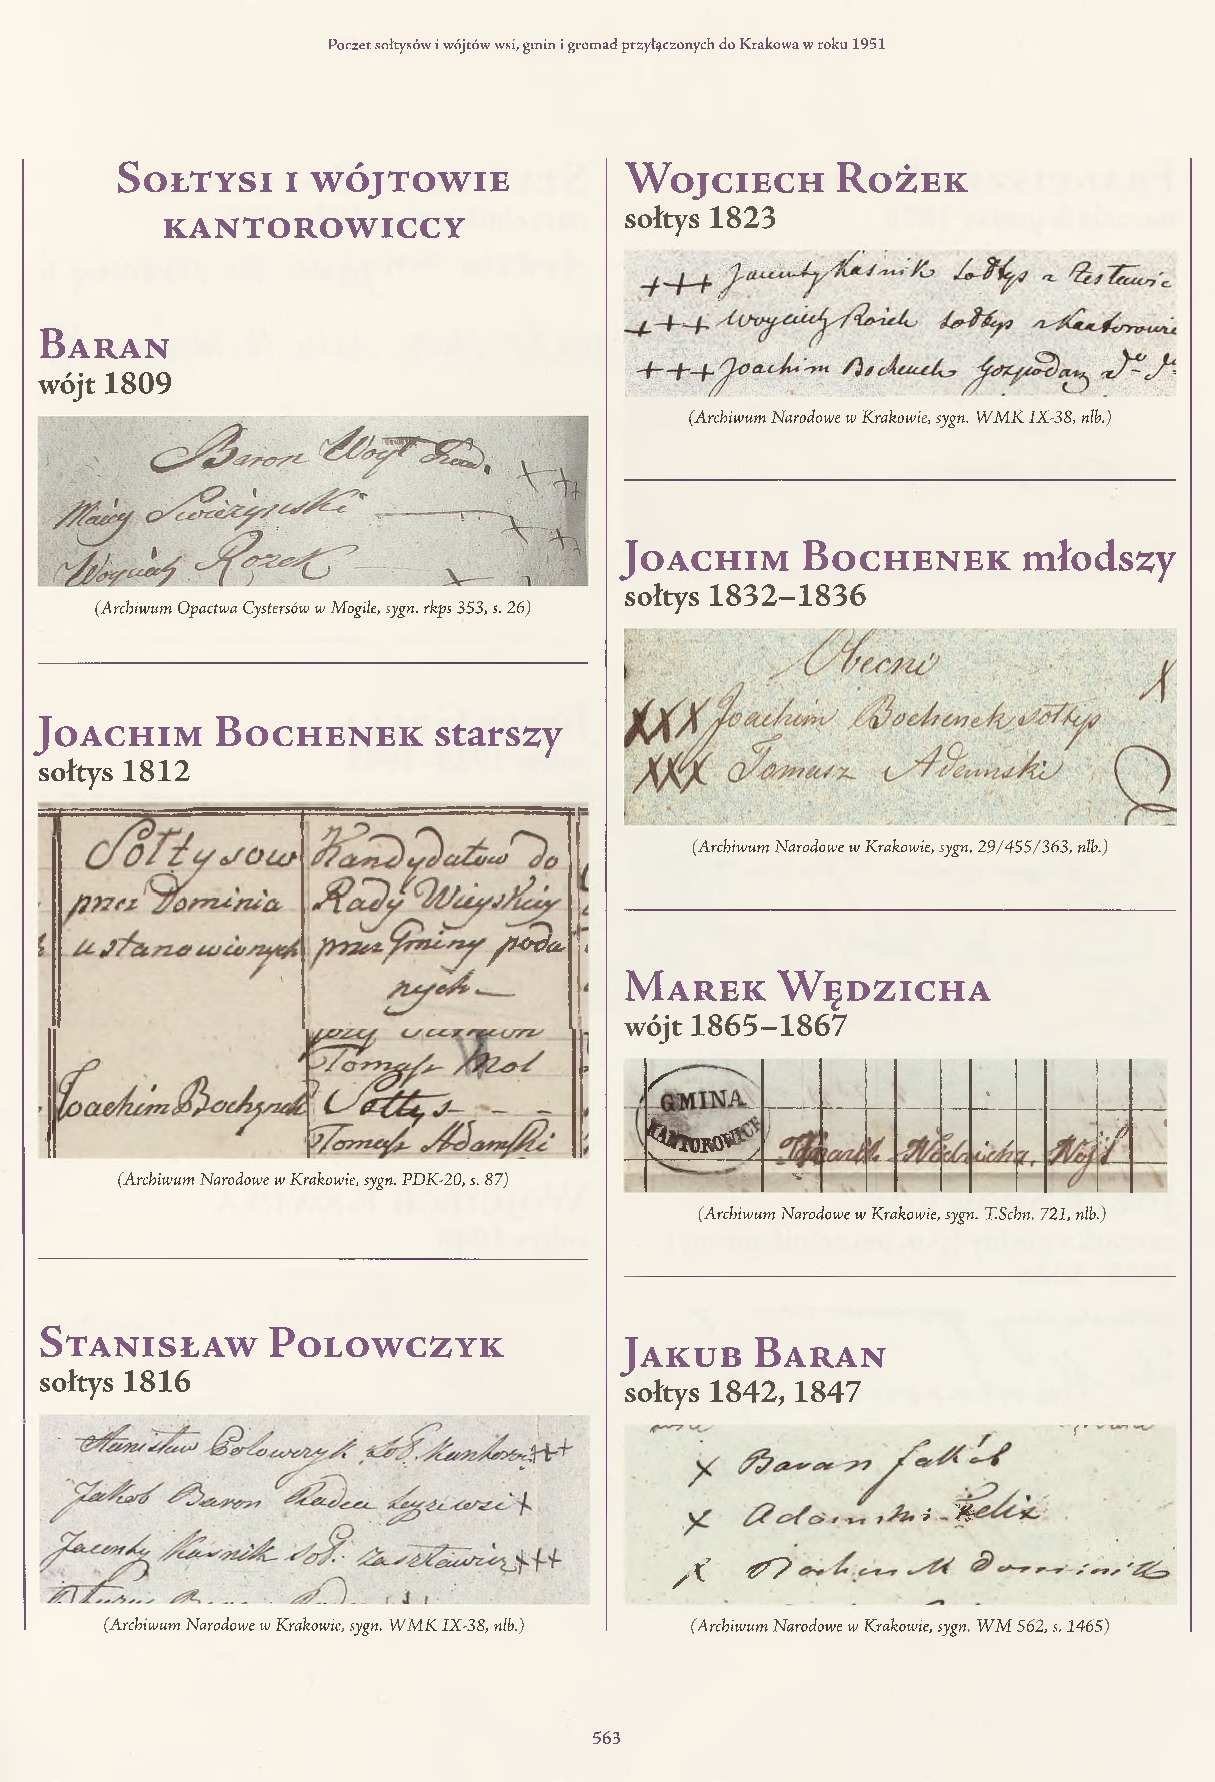 Poczet sołtysów i wójtów wsi, gmin i gromad przyłączonych do Krakowa w roku 1951
Sołtysi i wójtowie
kantorowiccy
Baran
wójt 1809
Baron Woyt
Maciey Swierzynski
Woyciech Rozek
(Archiwum Opactwa Cystersów w Mogile, sygn. rkps 353, s. 26)
Joachim Bochenek starszy
sołtys 1812
Sołtysow
przez Dominia
ustanowionych
Kandydatow do
Rady Wieyskiey
przez Gminy poda
nych
Joachim Bochynek
Tomasz Mol
Sołtys - -
Tomasz Adamski
(Archiwum Narodowe w Krakowie, sygn. PDK-20, s. 87)
Stanisław Polowczyk
sołtys 1816
Stanisław Polowczyk soł. Kantorow +++
Jakob Baron Radca teyze wsi +
Jacenty Kasnik soł. zasztawic +++
(Archiwum Narodowe w Krakowie, sygn. WMK IX-38, nlb.)
Wojciech Rożek
sołtys 1823
+++ Jacenty Kasnik Sołtys z Zesławic
+++ Woyciech Rozek Sołtys z Kantorowic
+++ Joachim Bochenek Gospodarz
(Archiwum Narodowe w Krakowie, sygn. WMK IX-38, nlb.)
Joachim Bochenek młodszy
sołtys 1832–1836
Obecni
XXX Joachim Bochenek sołtys
XXX Tomasz Adamski
(Archiwum Narodowe w Krakowie, sygn. 29/455/363, nlb.)
Marek Wędzicha
wójt 1865–1867
GMINA
KANTOROWICE
Marek Wedzicha, Wojt
(Archiwum Narodowe w Krakowie, sygn. T.Schn. 721, nlb.)
Jakub Baran
sołtys 1842, 1847
x Baran Jakób
x Adamski Felix
x Bochenek Dominik
(Archiwum Narodowe w Krakowie, sygn. WM 562, s. 1465)
563